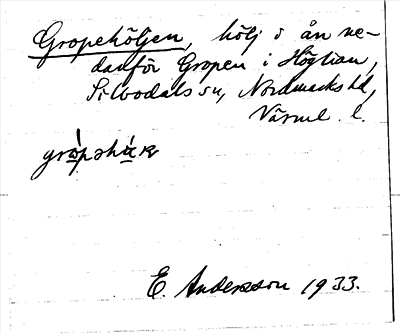 Gropehöljen, hölj i ån ne-
danför Gropen i Högtian,
Silbodals sn, Nordmarks hd,
Värml. l.
E. Andersson 1933.